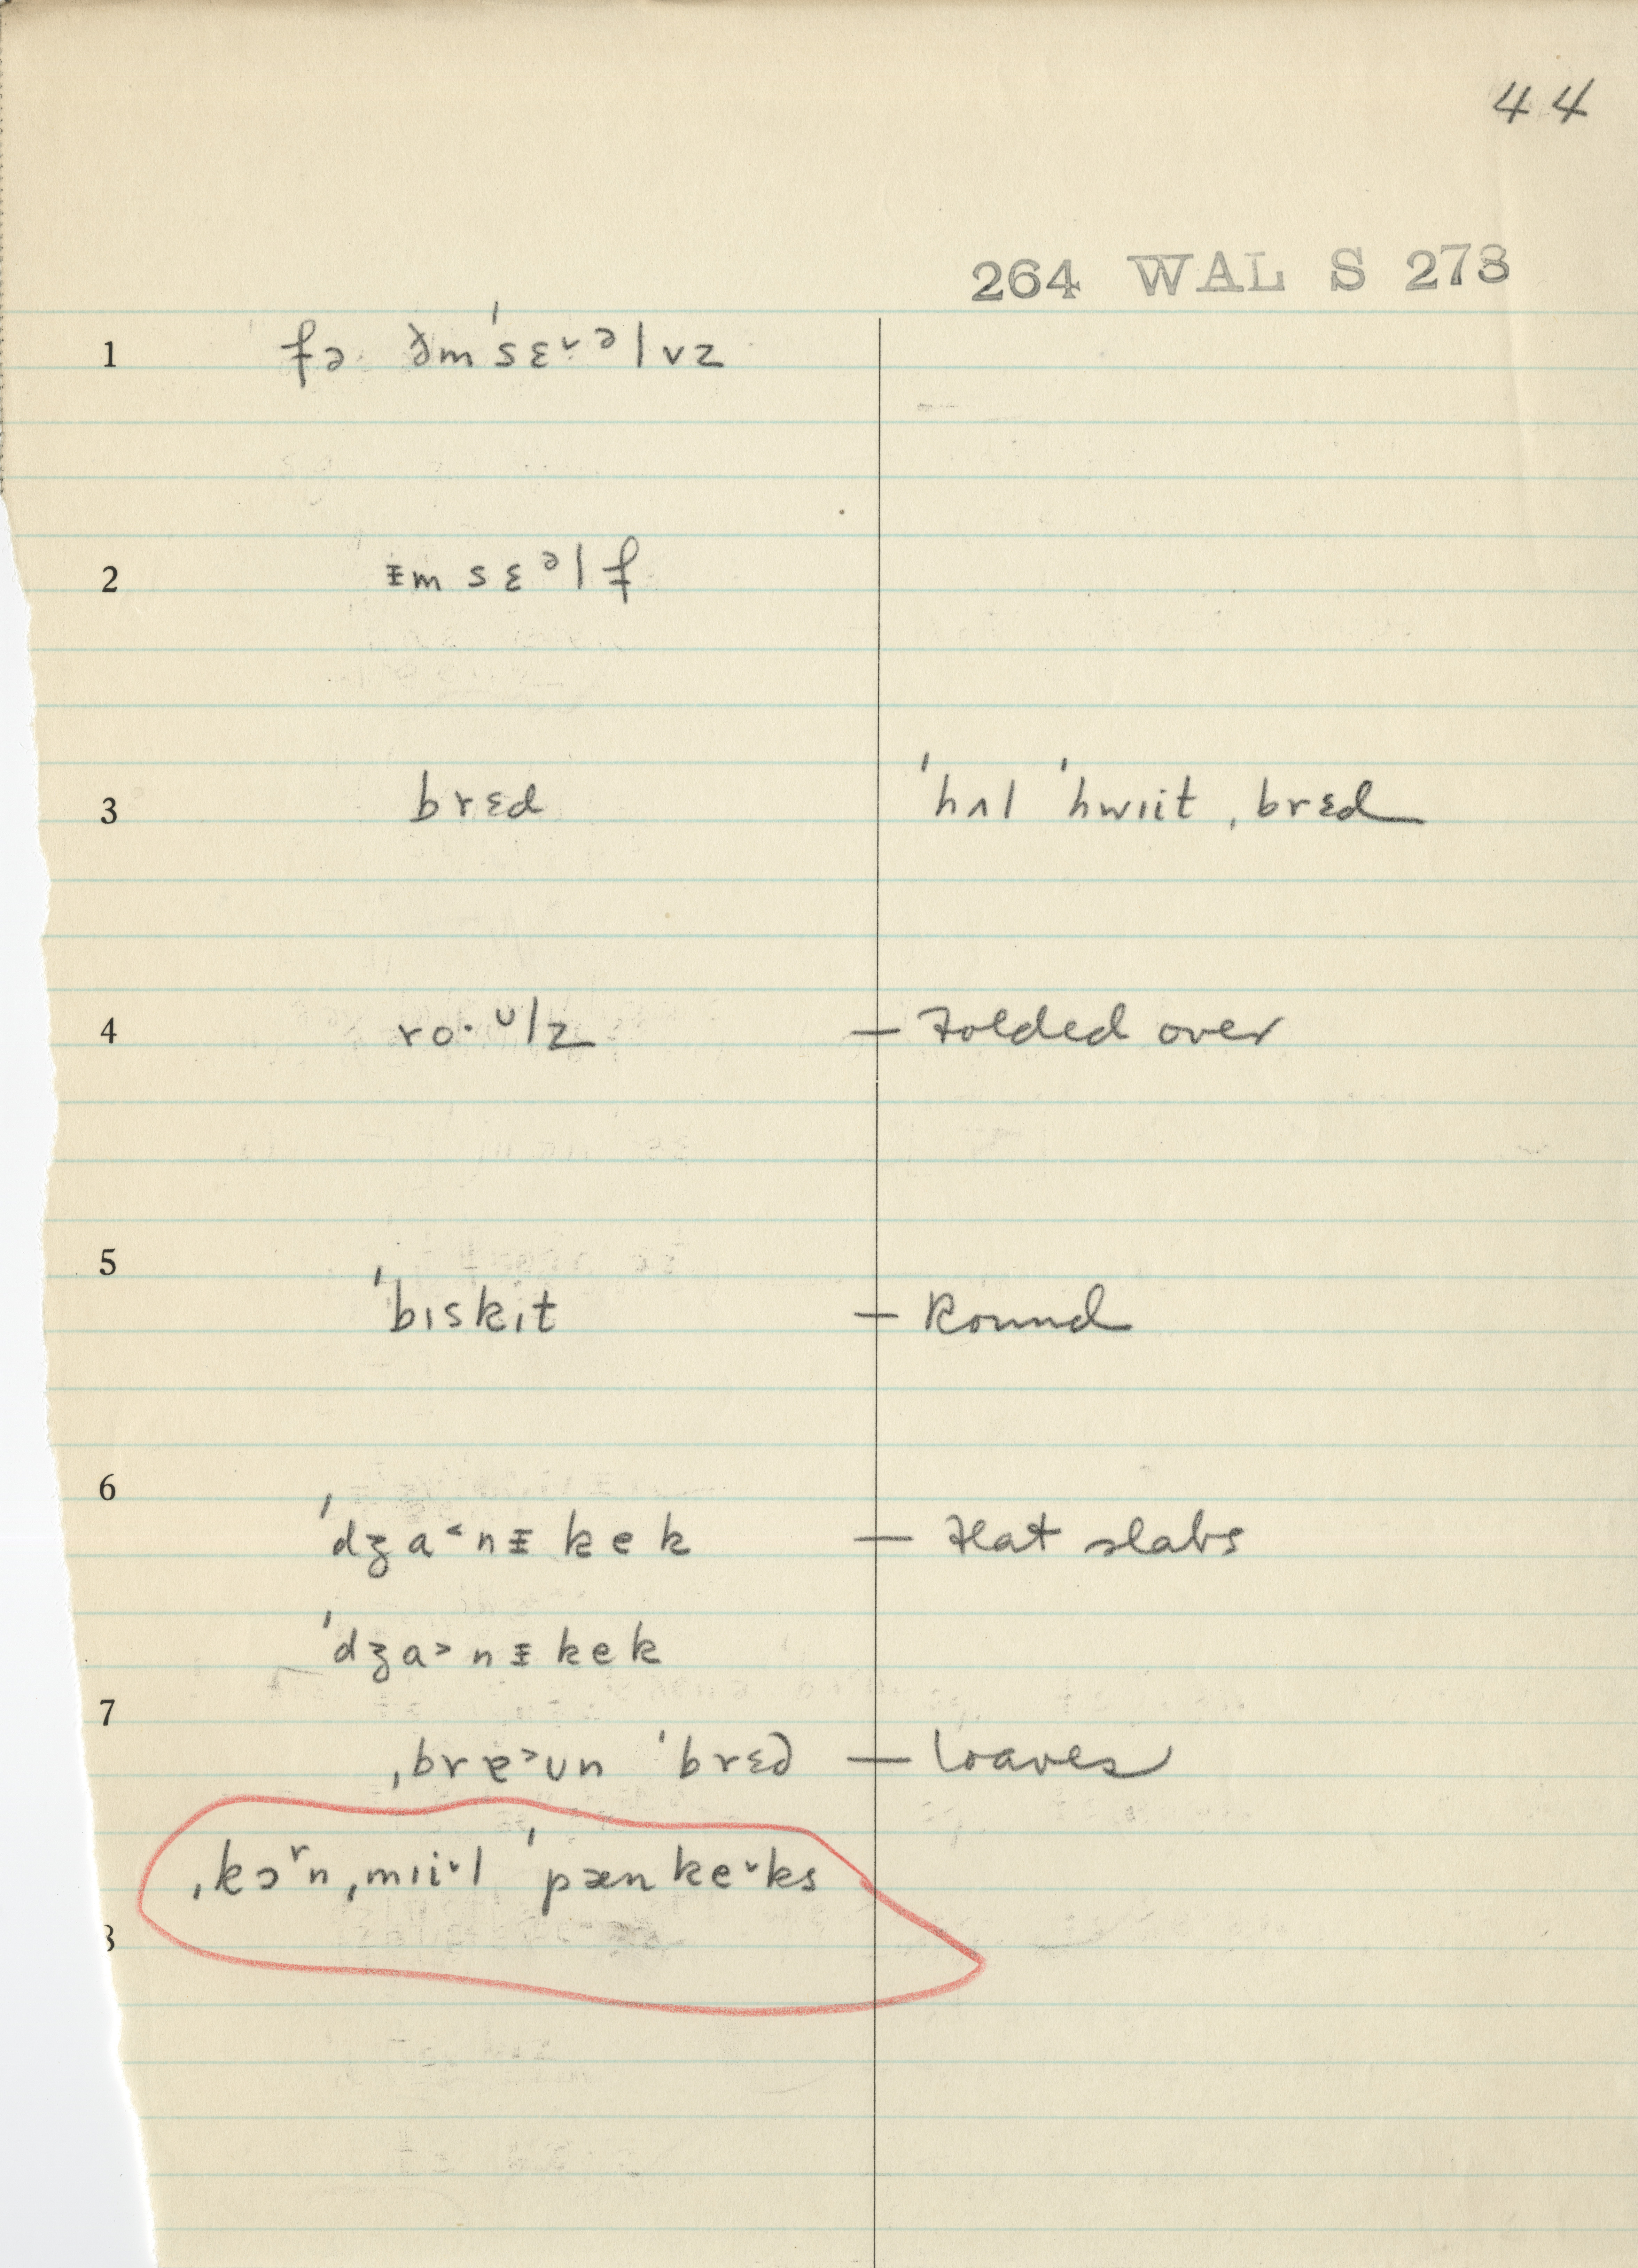 44
264 WAL S 273
1 fə ðm'sɛ˅ᵊlvz
2 ᵻmsɛᵊlf
3 brɛd 'hʌl 'hwɪit ˌbrɛd
4 ro·ᶸlz — Folded over
5
'bɪskɪt — Round
6
'dʒa˂nᵻkek — Flat slabs
'dʒa˃nᵻkek
7
ˌbrɐ˃ʊn 'brɛd — loaves
ˌkɔʳn ˌmɪi˅l 'pænke˅ks
8